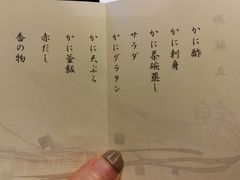 御献立
かに酢
かに刺身
かに茶碗蒸し
サラダ
かにグラタン
かに天ぷら
かに釜飯
赤だし
香の物